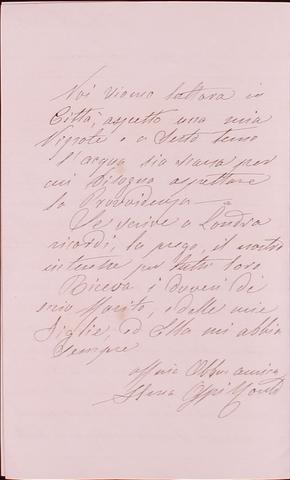 Noi siamo tuttora in
Città, aspetto una mia
Nipote e a Sesto temo
l'acqua sia scarsa per
cui bisogna aspettare
la Provvidenza —
Se scrive a Londra
ricordi, la prego, il nostro
per tutti loro
Riceva i doveri di
mio Marito, e delle mie
figlie, ed Ella mi abbia
sempre